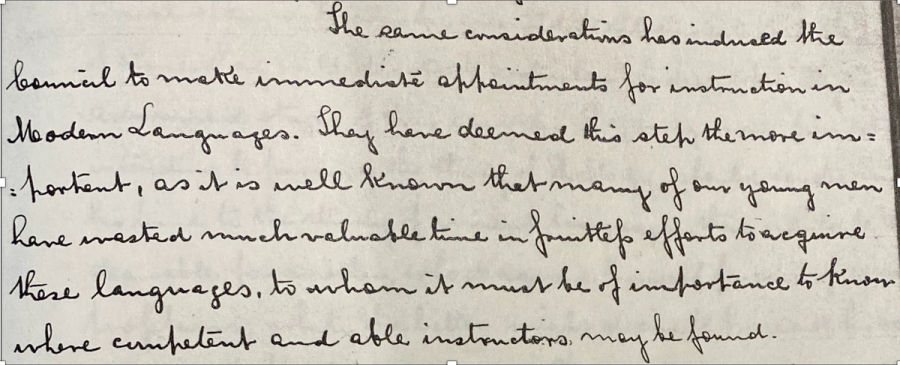 The same considerations has induced the
Council to make immediate appointments for instruction in
Modern Languages. They have deemed this step the more im=
:portant, as it is well known that many of our young men
have wasted much valuable time in fruitless efforts to acquire
these languages, to whom it must be of importance to know
where competent and able instructors, may be found.